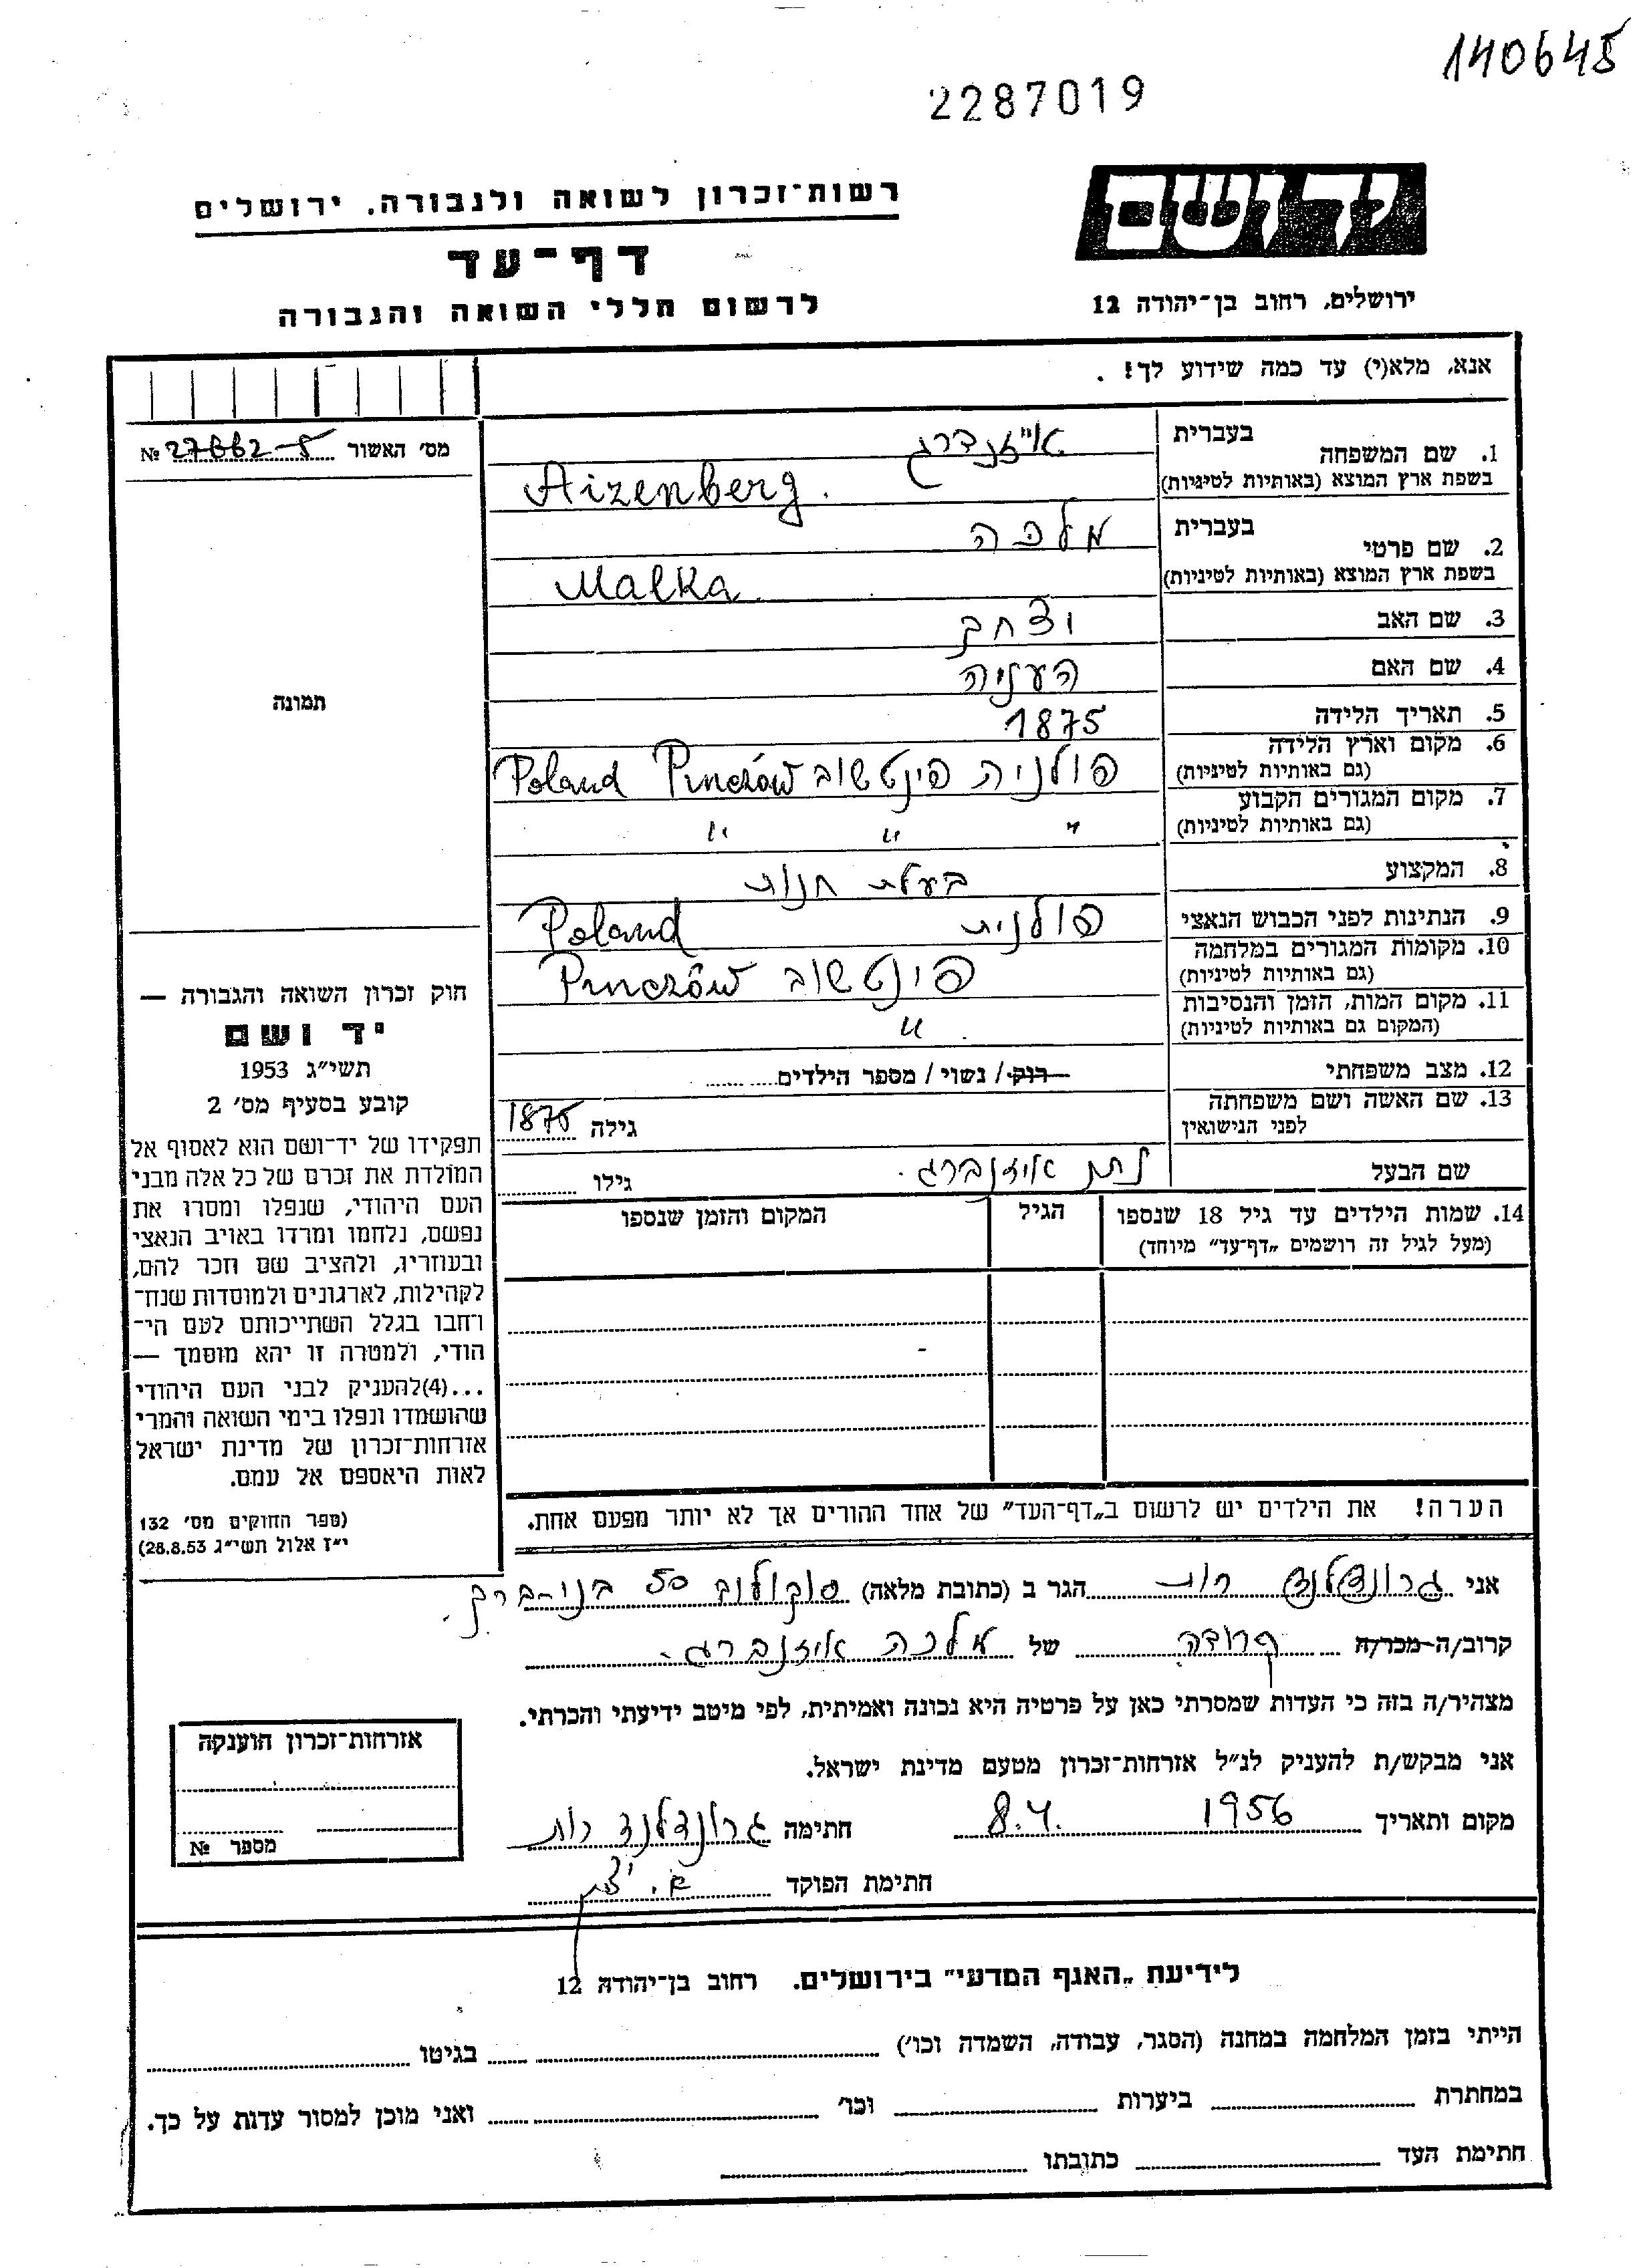 140645
2287019
יד ושם
ירושלים, רחוב בן־יהודה 12
רשות־זכרון לשואה ולגבורה, ירושלים
דף־עד
לרשום חללי השואה והגבורה
אנא, מלא(י) עד כמה שידוע לך!
מס׳ האשור №
1. שם המשפחה
בעברית
בשפת ארץ המוצא (באותיות לטיניות)
אייזנברג
Aizenberg.
2. שם פרטי
בעברית
בשפת ארץ המוצא (באותיות לטיניות)
מלכה
Malka
3. שם האב
יצחק
4. שם האם
5. תאריך הלידה
1875
6. מקום וארץ הלידה
(גם באותיות לטיניות)
פולנית פינטשוב Pinczów Poland
7. מקום המגורים הקבוע
(גם באותיות לטיניות)
" " "
8. המקצוע
בעלת חנות
9. הנתינות לפני הכבוש הנאצי
פולנית Poland
10. מקומות המגורים במלחמה
(גם באותיות לטיניות)
פינטשוב Pinczów
11. מקום המות, הזמן והנסיבות
(המקום גם באותיות לטיניות)
"
12. מצב משפחתי
רוק / נשוי / מספר הילדים
13. שם האשה ושם משפחתה
לפני הנישואין
גילה 1875
שם הבעל
נתן איזנברג.
גילו
14. שמות הילדים עד גיל 18 שנספו
(מעל לגיל זה רושמים „דף־עד״ מיוחד)
הגיל
המקום והזמן שנספו
הערה! את הילדים יש לרשום ב„דף־העד״ של אחד ההורים אך לא יותר מפעם אחת.
תמונה
חוק זכרון השואה והגבורה —
יד ושם
תשי״ג 1953
קובע בסעיף מס׳ 2
תפקידו של יד־ושם הוא לאסוף אל
המולדת את זכרם של כל אלה מבני
העם היהודי, שנפלו ומסרו את
נפשם, נלחמו ומרדו באויב הנאצי
ובעוזריו, ולהציב שם וזכר להם,
לקהילות, לארגונים ולמוסדות שנח־
רבו בגלל השתייכותם לעם הי־
הודי, ולמטרה זו יהא מוסמך —
...(4)להעניק לבני העם היהודי
שהושמדו ונפלו בימי השואה והמרי
אזרחות־זכרון של מדינת ישראל
לאות היאספם אל עמם.
(ספר החוקים מס׳ 132
י״ז אלול תשי״ג 28.8.53)
אני גרונדלנד רות הגר ב (כתובת מלאה) סוקולוב 50 בני-ברק.
קרוב/ה-מכר/ה של מלכה איזנברג.
מצהיר/ה בזה כי העדות שמסרתי כאן על פרטיה היא נכונה ואמיתית, לפי מיטב ידיעתי והכרתי.
אני מבקש/ת להעניק לנ״ל אזרחות־זכרון מטעם מדינת ישראל.
מקום ותאריך 1956 8.4. חתימה גרונדלנד רות
חתימת הפוקד
אזרחות־זכרון הוענקה
מספר №
לידיעת „האגף המדעי״ בירושלים. רחוב בן־יהודה 12
הייתי בזמן המלחמה במחנה (הסגר, עבודה, השמדה וכו׳) בגיטו
במחתרת ביערות וכו׳ ואני מוכן למסור עדות על כך.
חתימת העד כתובתו